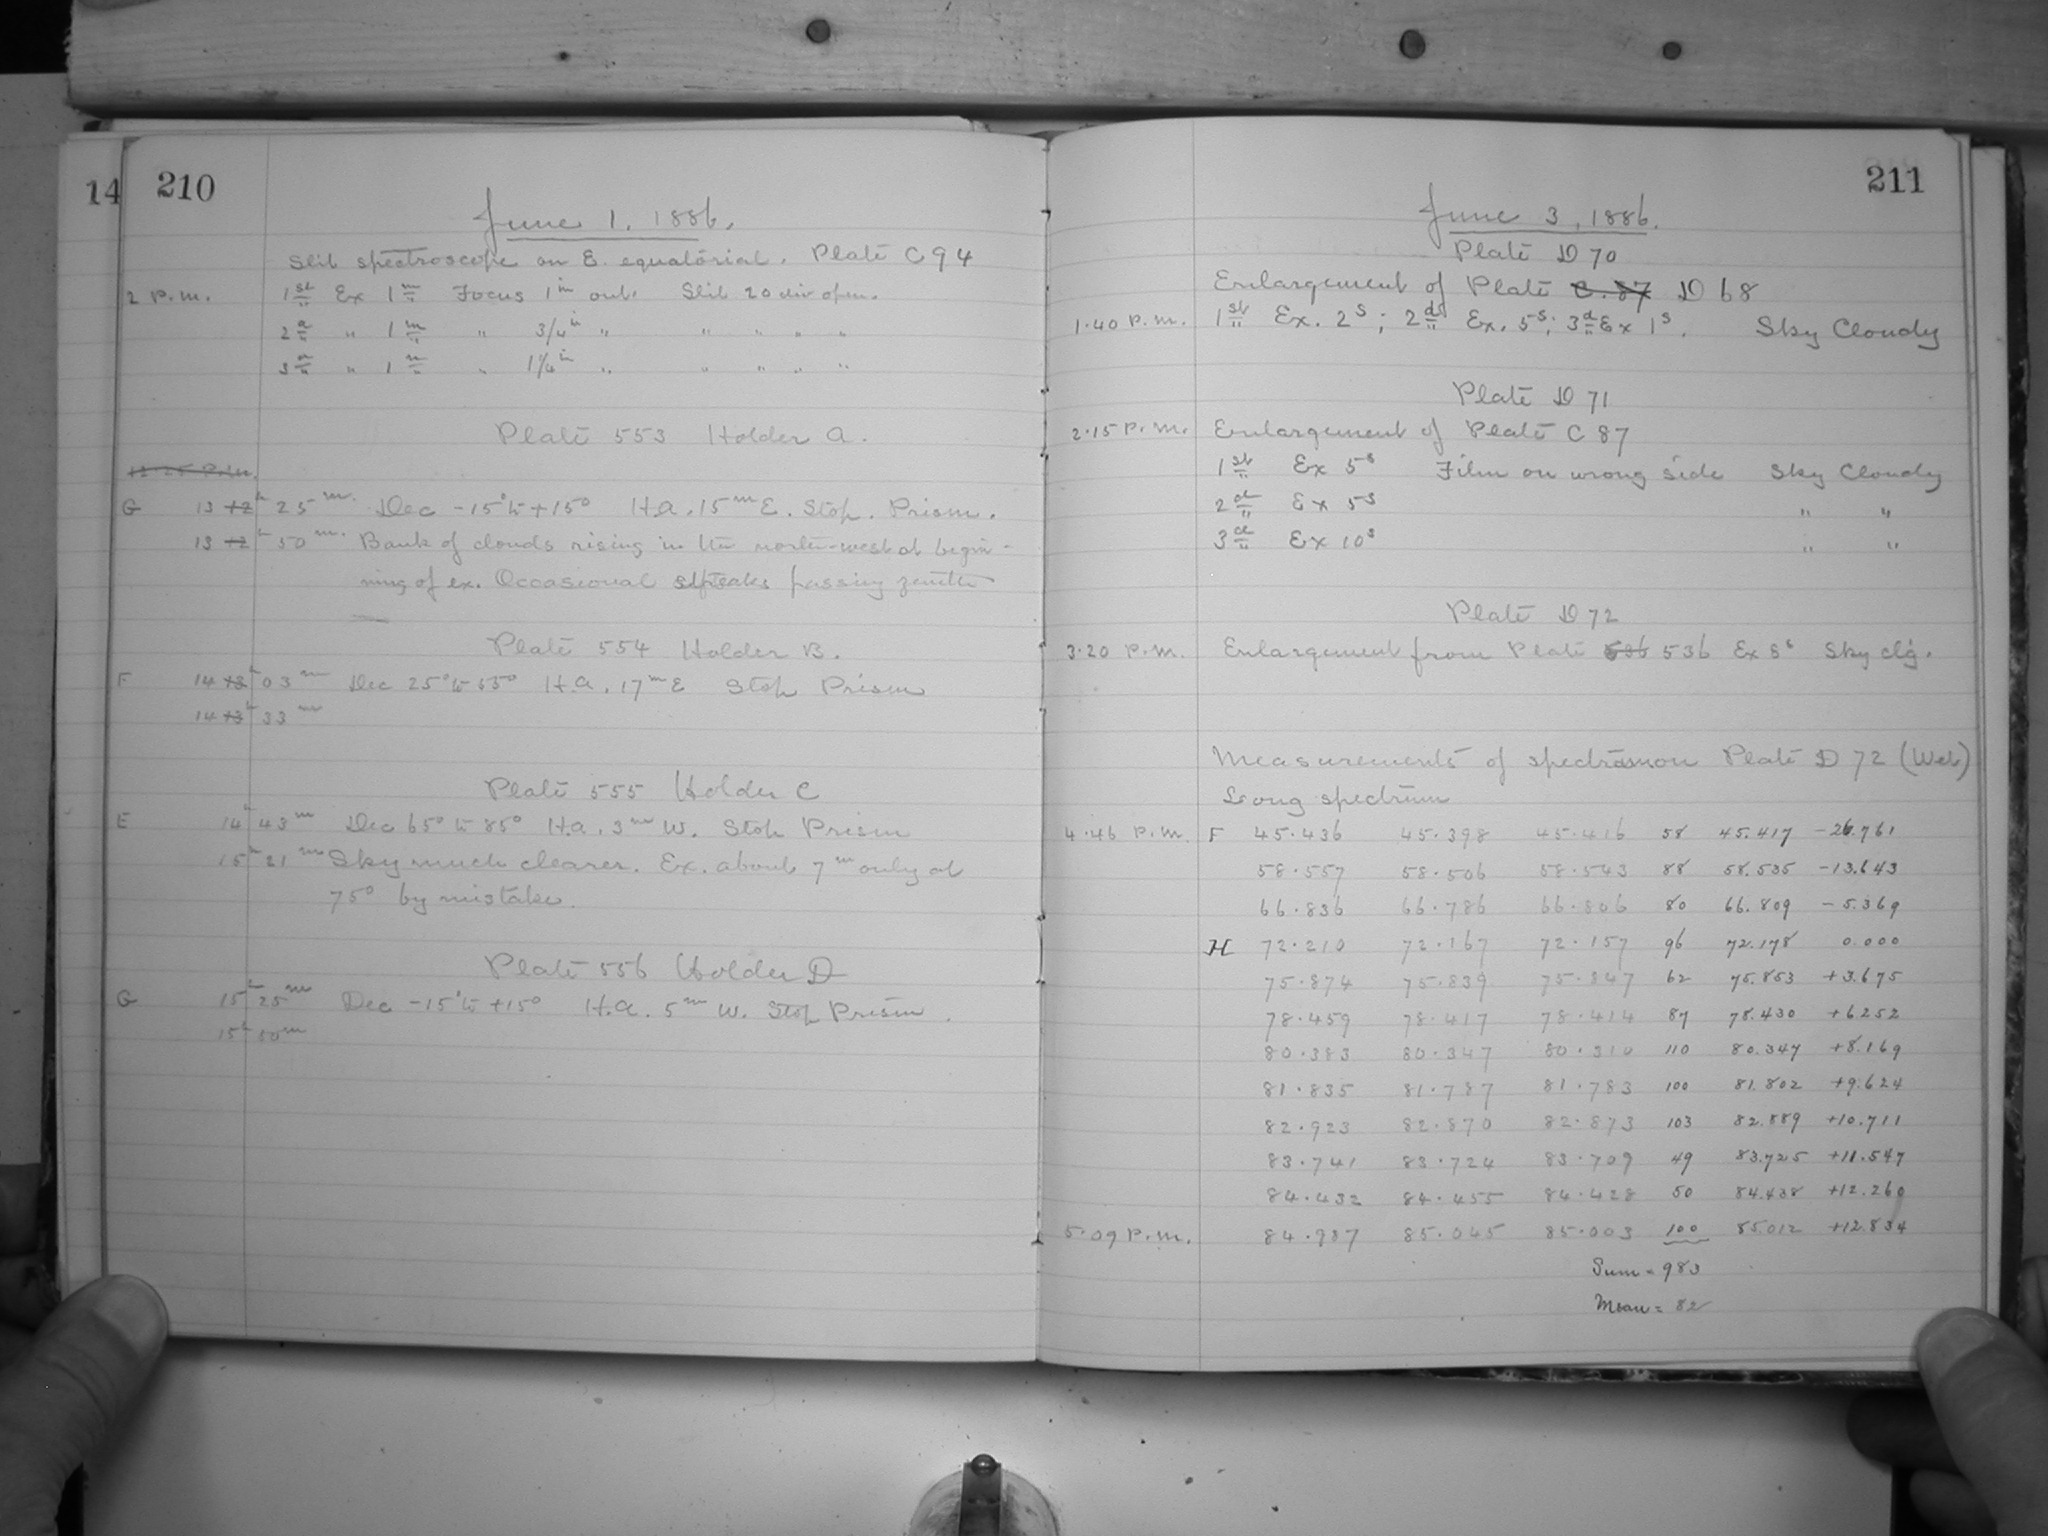 14
210
June 1, 1886.
Slit spectroscope on E. equatorial. Plate C 94
2 P.m. 1st Ex 1m Focus 1in out. Slit 20 div open.
2d " 1m " 3/4in " " " " "
3d " 1m " 1 1/4in " " " " "
Plate 553 Holder A.
12.25 P.m.
G 13 12h 25m. Dec -15° to +15° H.a. 15m E. Stop. Prism.
13 12h 50m. Bank of clouds rising in the north-west at begin-
ning of ex. Occasional streaks passing zenith
Plate 554 Holder B.
F 14 13h 03m Dec 25° to 55° H.a. 17m E Stop Prism
14 13h 33m
Plate 555 Holder C
E 14h 43m Dec 65° to 85° H.a. 3m W. Stop Prism
15h 21m Sky much clearer. Ex. about 7m only at
75° by mistake.
Plate 556 Holder D
G 15h 25m Dec -15° to +15° H.a. 5m W. Stop Prism.
15h 50m
211
June 3, 1886.
Plate D 70
Enlargement of Plate C. 87 D 68
1.40 P.m. 1st Ex. 2s; 2d Ex. 5s; 3d Ex 1s. Sky Cloudy
Plate D 71
2.15 P.m. Enlargement of Plate C 87
1st Ex 5s Film on wrong side Sky Cloudy
2d Ex 5s " "
3d Ex 10s " "
Plate D 72
3.20 P.m. Enlargement from Plate 536 Ex 5s Sky cl'g.
Measurements of spectra on Plate D 72 (Wet)
Long spectrum
4.46 P.m. F 45.436 45.398 45.416 58 45.417 -26.761
58.557 58.506 58.543 88 58.535 -13.643
66.836 66.786 66.806 80 66.809 -5.369
H 72.210 72.167 72.157 96 72.178 0.000
75.874 75.839 75.847 62 75.853 +3.675
78.459 78.417 78.414 87 78.430 +6.252
80.383 80.347 80.310 110 80.347 +8.169
81.835 81.787 81.783 100 81.802 +9.624
82.923 82.870 82.873 103 82.889 +10.711
83.741 83.724 83.709 49 83.725 +11.547
84.432 84.455 84.428 50 84.438 +12.260
5.09 P.m. 84.987 85.045 85.003 100 85.012 +12.834
Sum = 983
Mean = 82